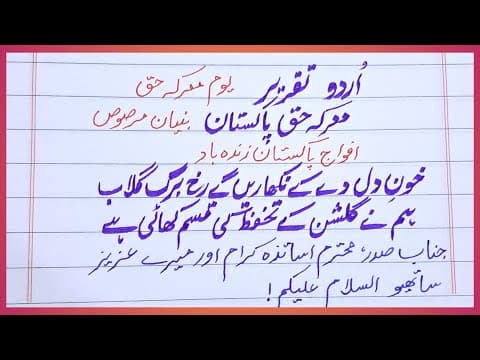 اُردو تقریر یوم معرکہ حق
معرکہ حق پاکستان بنیان مرصوص
افواج پاکستان زندہ باد
خونِ دل دے کے نکھاریں گے رخ برگ گلاب
ہم نے گلشن کے تحفظ کی قسم کھائی ہے
جناب صدر، محترم اساتذہ کرام اور میرے عزیز
ساتھیو السلام علیکم!